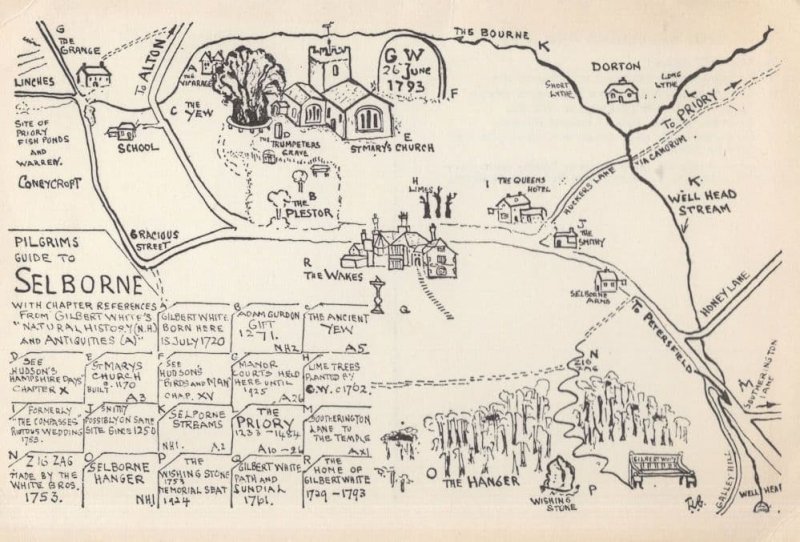 G
THE
GRANGE
LINCHES
TO ALTON
SITE OF
PRIORY
FISH PONDS
AND
WARREN.
CONEYCROFT
SCHOOL
A
THE
VICARAGE
C THE
YEW
G W
26 June
1793
F
THE BOURNE
K
DORTON
SHORT
LYTHE
LONG
LYTHE
L
TO PRIORY
VIA CANORUM
D
THE
TRUMPETERS
GRAVE
E
ST MARY'S CHURCH
B
THE
PLESTOR
H
LIMES
I THE QUEENS
HOTEL
HUCKERS LANE
K
WELL HEAD
STREAM
J
THE
SMITHY
GRACIOUS
STREET
R
THE WAKES
Q
SELBORNE
ARMS
HONEY LANE
TO PETERSFIELD
N
ZIG
ZAG
M
SOUTHERINGTON
LANE
O THE HANGER
WISHING
STONE
P
GILBERT WHITE
GALLEY HILL
WELL HEAD
PILGRIMS
GUIDE TO
SELBORNE
WITH CHAPTER REFERENCES
FROM GILBERT WHITE'S
"NATURAL HISTORY (N.H)
AND ANTIQUITIES (A)"
A
GILBERT WHITE
BORN HERE
18 JULY 1720
B
ADAM GURDON
GIFT
1271.
NH2
C
THE ANCIENT
YEW
A5
D
SEE
HUDSON'S
HAMPSHIRE DAYS
CHAPTER X
E
ST MARYS
CHURCH
BUILT c. 1170
A3
F
SEE
HUDSON'S
"BIRDS AND MAN"
CHAP. XV
G
MANOR
COURTS HELD
HERE UNTIL
1925
A26
H
LIME TREES
PLANTED BY
G.W. c1762.
I FORMERLY
"THE COMPASSES"
RIOTOUS WEDDING
J SMITHY
POSSIBLY ON SAME
SITE SINCE 1250
K
SELBORNE
STREAMS
NH1.
L
THE
PRIORY
1233 - 1484
M
SOUTHERINGTON
LANE TO
THE TEMPLE
N ZIG ZAG
MADE BY THE
WHITE BROS.
1753.
O
SELBORNE
HANGER
NH1
P THE
WISHING STONE
1753
MEMORIAL SEAT
1924
Q
GILBERT WHITE
PATH AND
SUNDIAL
1761.
R
THE
HOME OF
GILBERT WHITE
1729 - 1793